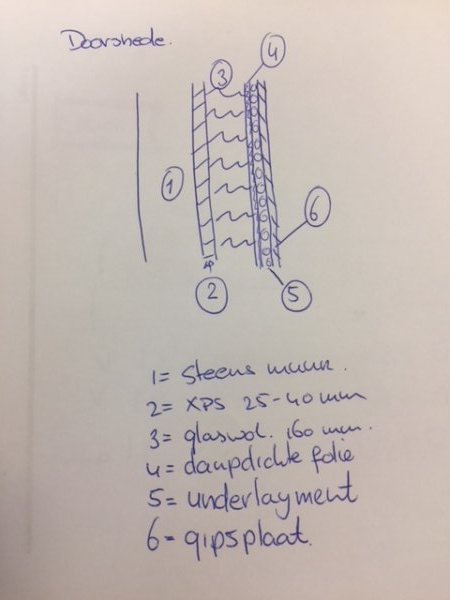 Doorsnede.
4
3
1
6
2
5
1= Steens muur.
2= XPS 25-40 mm
3= glaswol. 160 mm.
4= dampdichte folie
5= underlayment
6= gipsplaat.